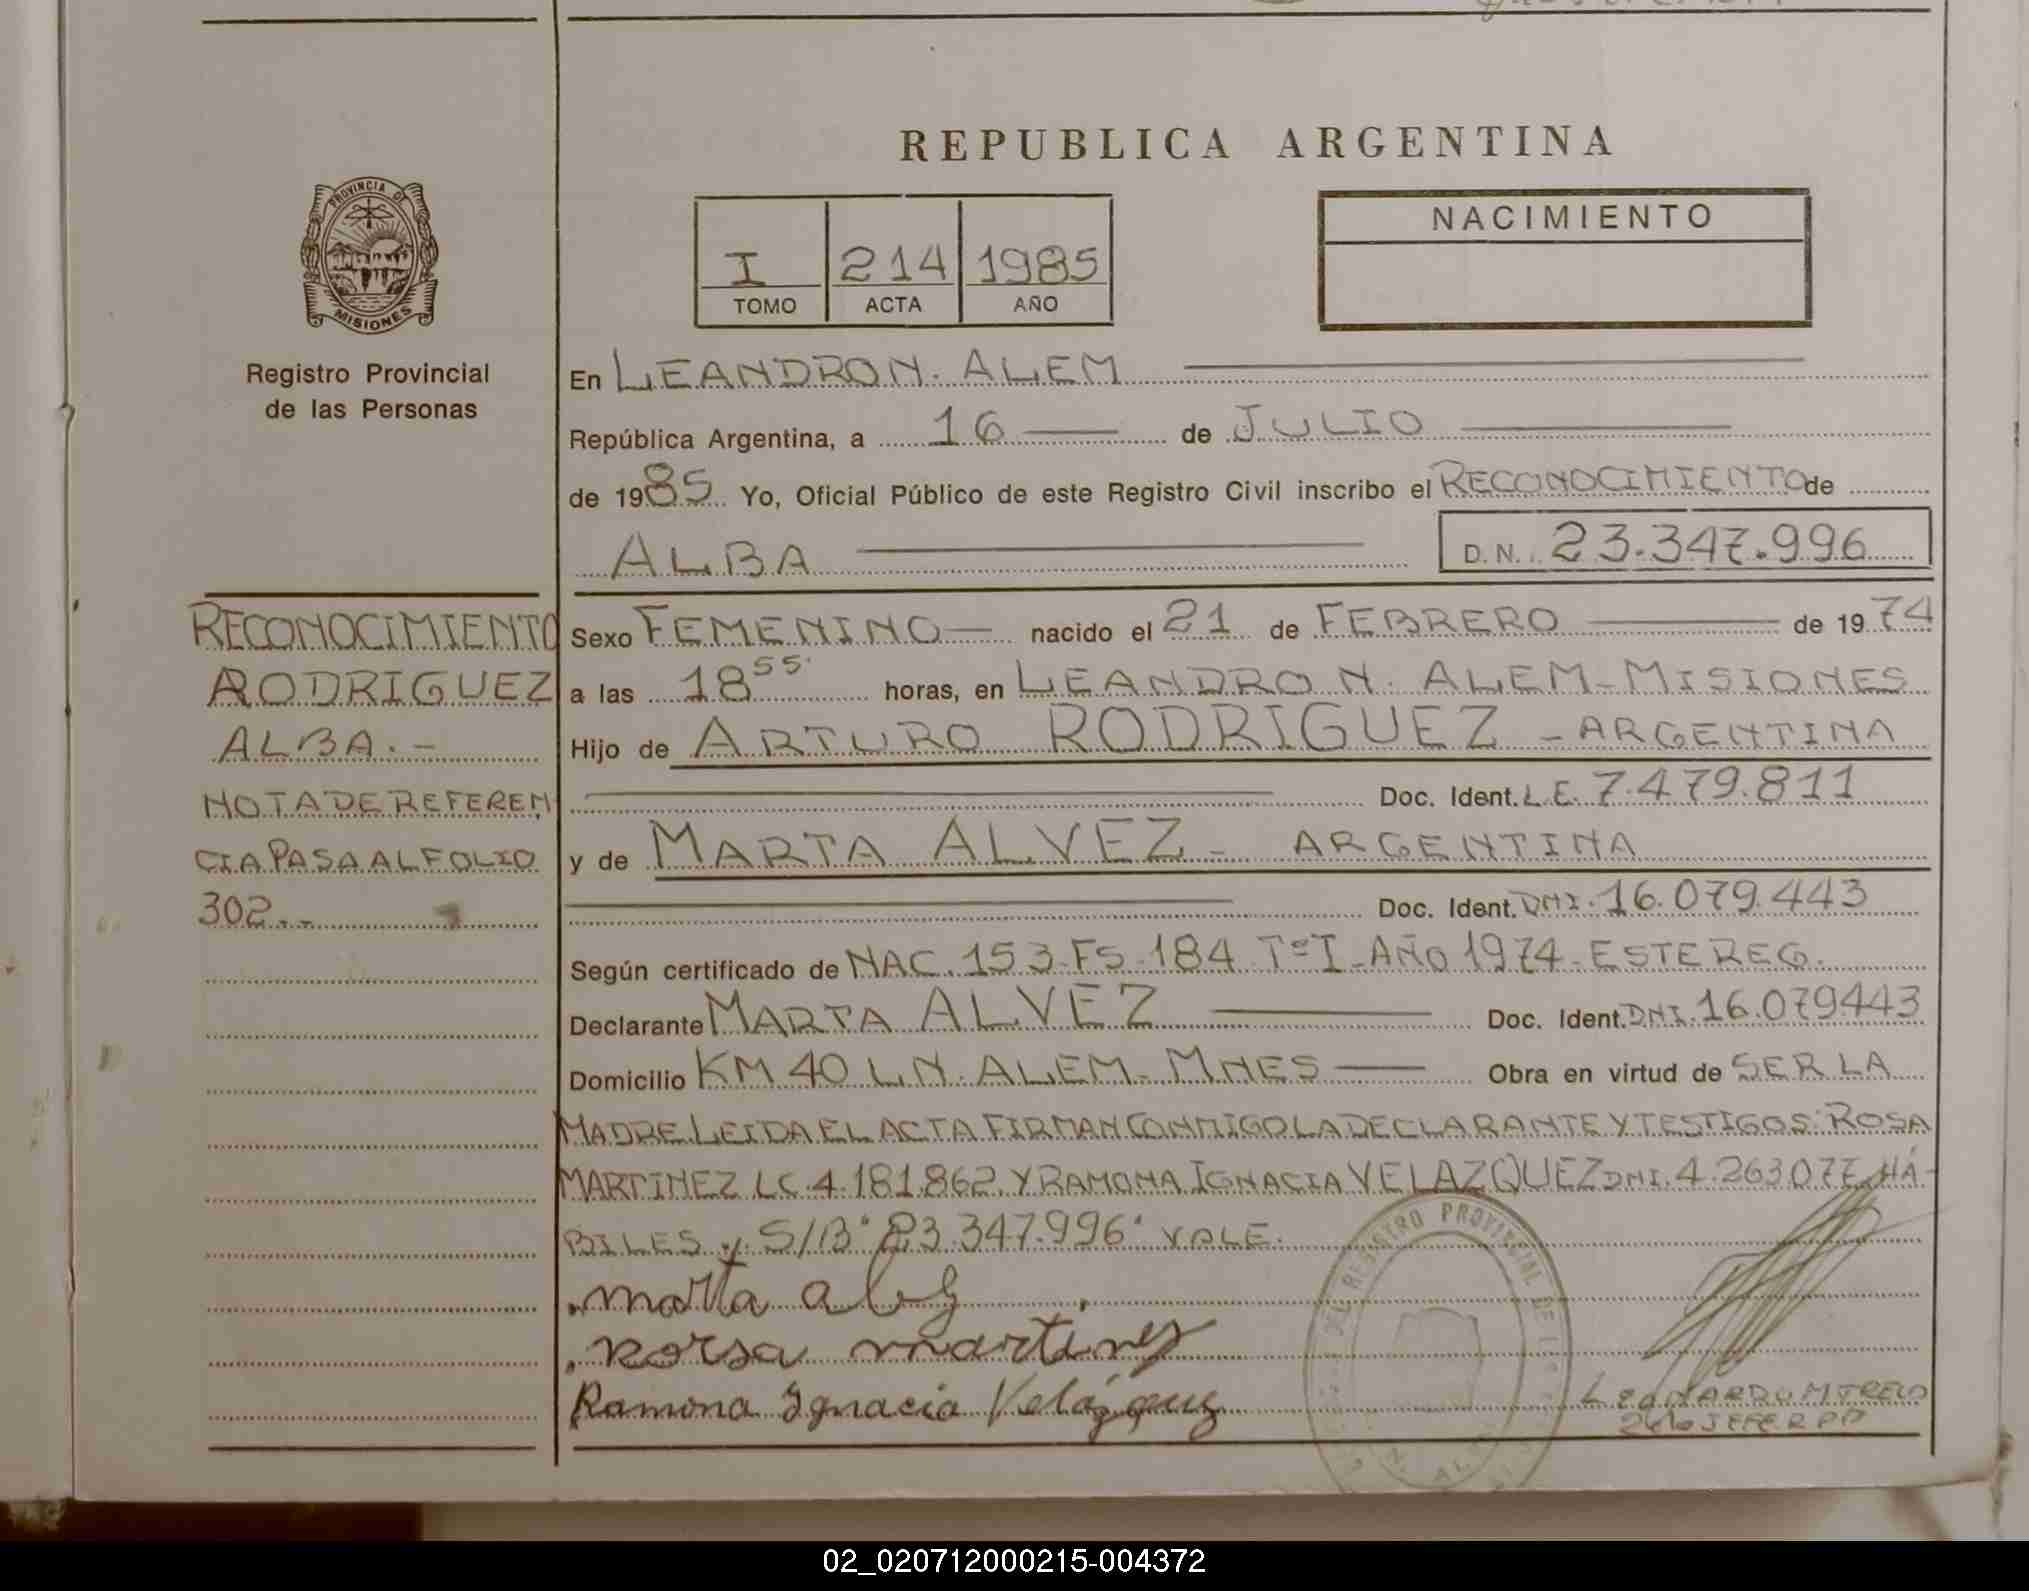 REPUBLICA ARGENTINA
PROVINCIA DE
MISIONES
Registro Provincial
de las Personas
I 214 1985
TOMO ACTA AÑO
NACIMIENTO
En LEANDRO N. ALEM
República Argentina, a 16 de JULIO
de 1985 Yo, Oficial Público de este Registro Civil inscribo el RECONOCIMIENTO de
ALBA D.N. 23.347.996
RECONOCIMIENTO
RODRIGUEZ
ALBA.-
NOTA DE REFEREN
CIA PASA AL FOLIO
302.-
Sexo FEMENINO nacido el 21 de FEBRERO de 1974
a las 18 55 horas, en LEANDRO N. ALEM - MISIONES
Hijo de ARTURO RODRIGUEZ - ARGENTINA
Doc. Ident. L.E. 7.479.811
y de MARTA ALVEZ - ARGENTINA
Doc. Ident. DNI. 16.079.443
Según certificado de NAC. 153 - FS - 184 Tº I - AÑO 1974 - ESTE REG.
Declarante MARTA ALVEZ Doc. Ident. DNI. 16.079443
Domicilio KM 40 L.N. ALEM - MNES Obra en virtud de SER LA
MADRE LEIDA EL ACTA FIRMAN CONMIGO LA DECLARANTE Y TESTIGOS: ROSA
MARTINEZ LC. 4.181.862. Y RAMONA IGNACIA VELAZQUEZ DNI. 4.263.077 HÁ-
BILES y S/B "23.347.996" VALE.
marta albz
rorsa martines
Ramona Ignacia Velázquez
DEL REGISTRO PROVINCIAL DE
LEONARDO M TRELO
2do JEFE RPP
02_020712000215-004372